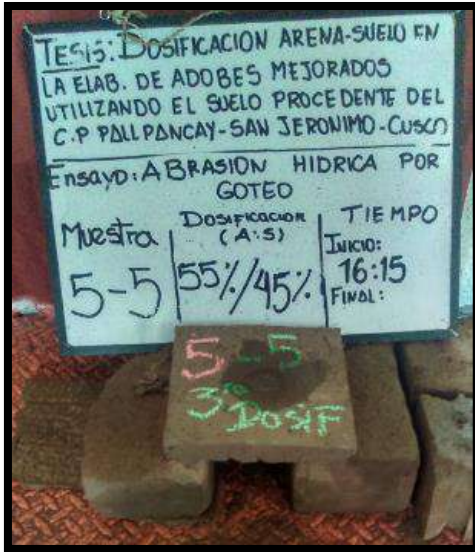 TESIS: DOSIFICACION ARENA-SUELO EN
LA ELAB. DE ADOBES MEJORADOS
UTILIZANDO EL SUELO PROCEDENTE DEL
C.P PALLPANCAY-SAN JERONIMO-CUSCO
Ensayo: ABRASION HIDRICA POR
GOTEO
Muestra
5-5
DOSIFICACION
(A:S)
55%/45%
TIEMPO
INICIO:
16:15
FINAL:
5-5
3ra
DOSIF